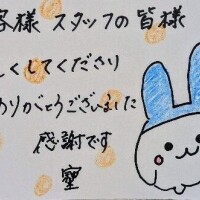 客様 スタッフの皆様
しくしてくださり
ありがとうございました
感謝です